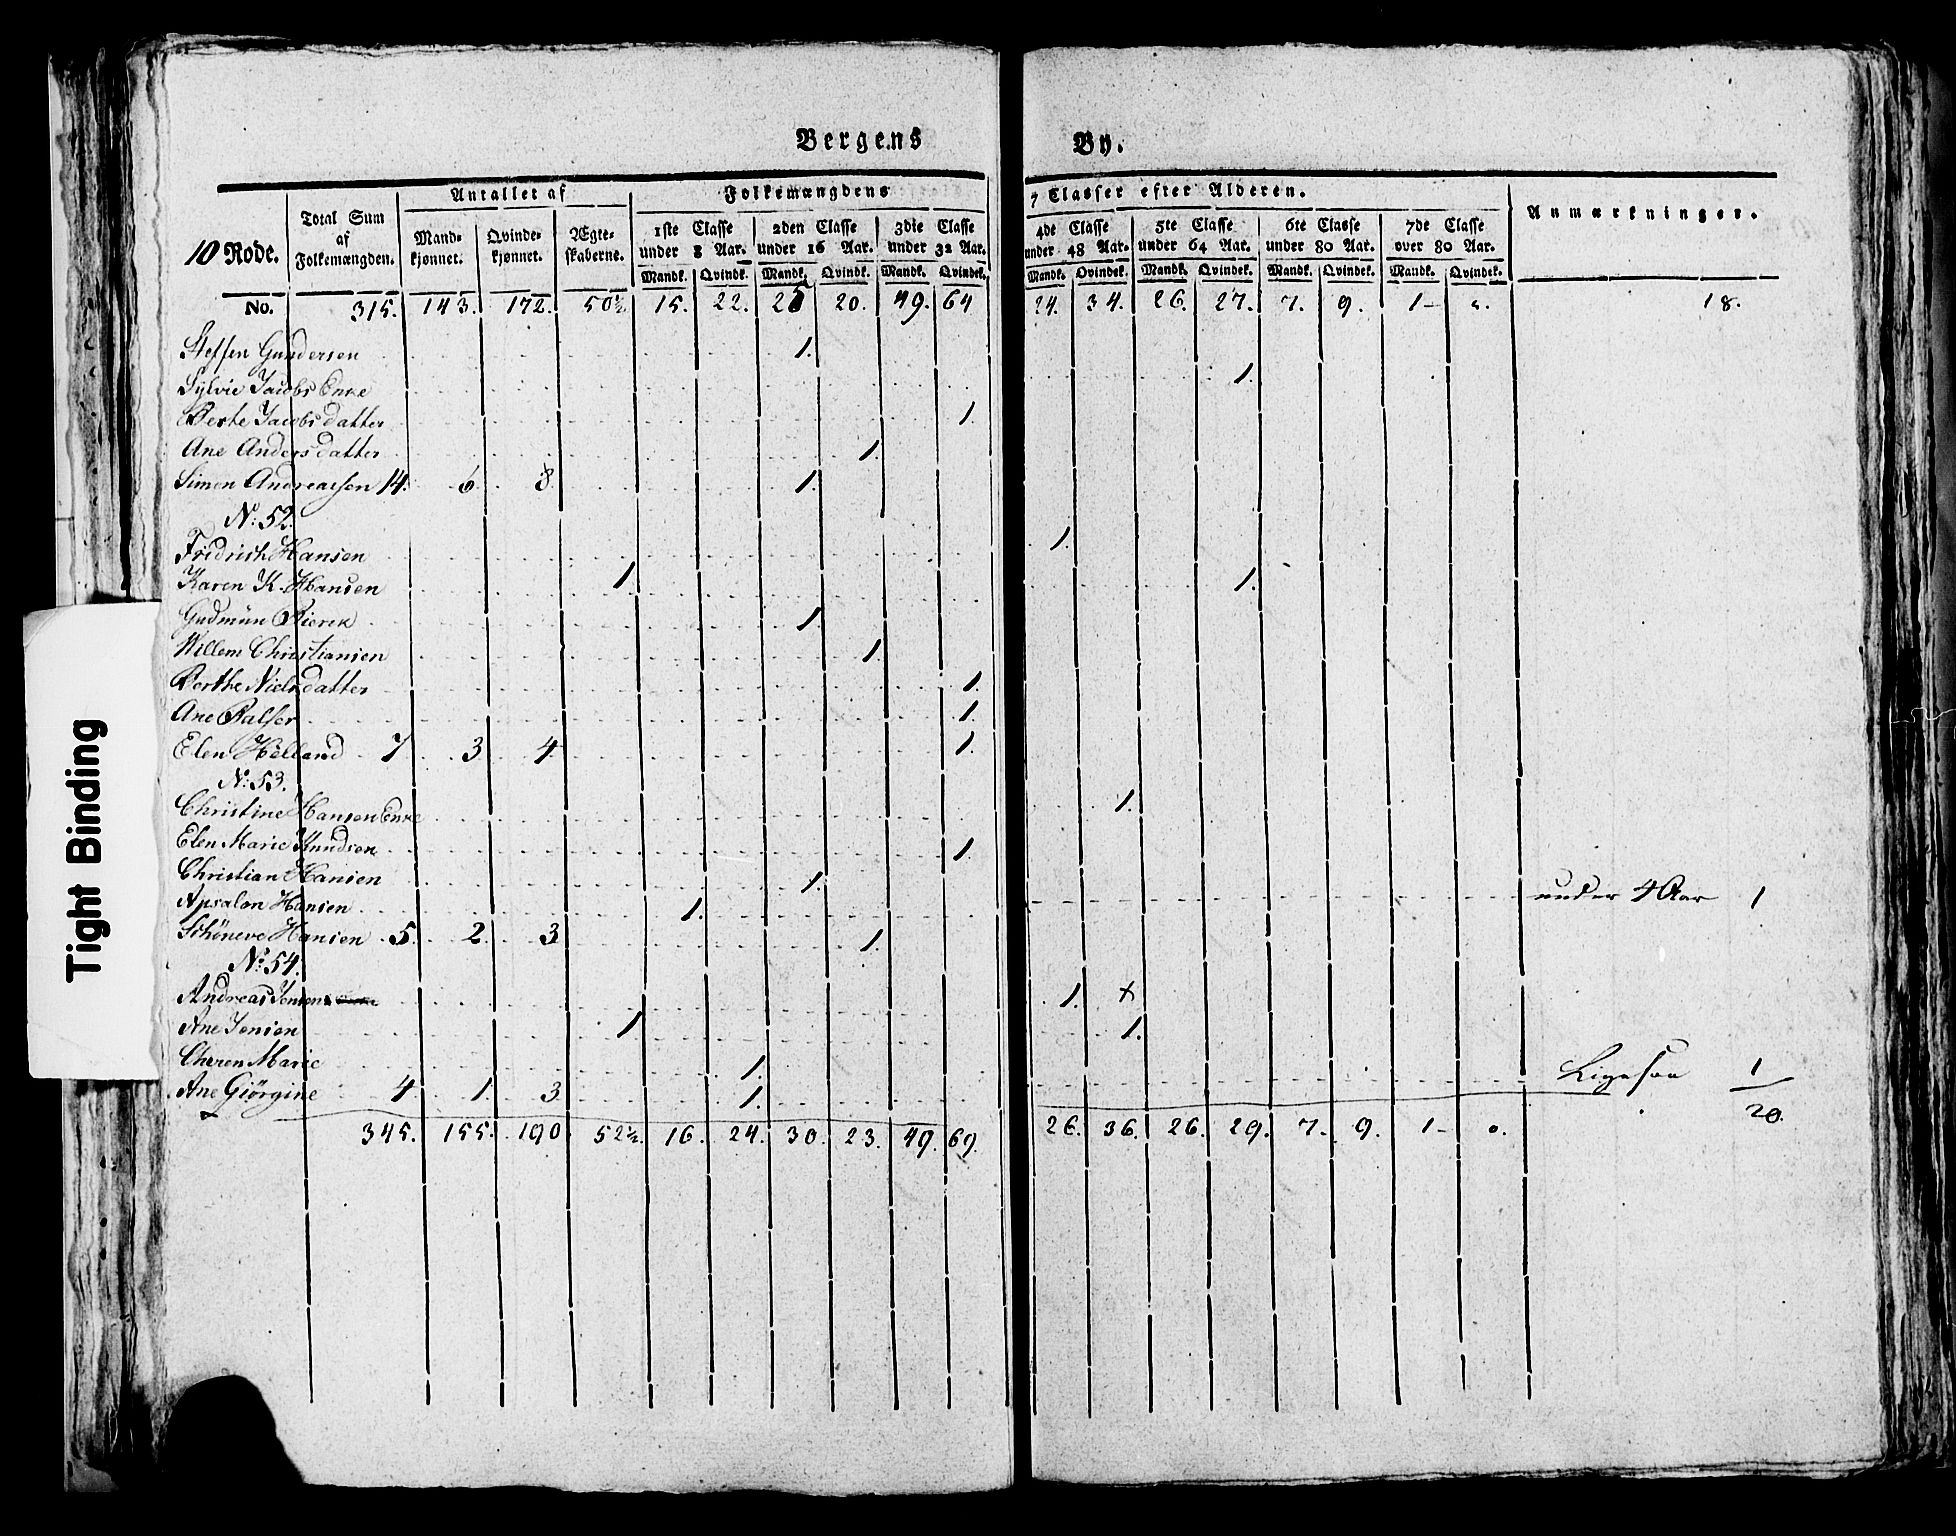 Bergens By.
Antallet af Folkemængdens 7 Classer efter Alderen. Anmærkninger.
10 Rode. Total Sum af Folkemængden. Mandkjønnet. Qvindekjønnet. Ægteskaberne. 1ste Classe under 8 Aar. 2den Classe under 16 Aar. 3die Classe under 32 Aar. 4de Classe under 48 Aar. 5te Classe under 64 Aar. 6te Classe under 80 Aar. 7de Classe over 80 Aar.
Mandk. Qvindk. Mandk. Qvindk. Mandk. Qvindek. Mandk. Qvindek. Mandk. Qvindek. Mandk. Qvindek. Mandk. Qvindek.
No. 315. 143. 172. 50½ 15. 22. 25 20. 49. 64 24. 34. 26. 27. 7. 9. 1 18.
Steffen Gundersen 1.
Sylvie Jacobs Enke 1.
Berte Jacobs datter 1.
Ane Anders datter 1.
Simon Andreassen 14. 6. 8. 1.
N: 52.
Fridrich Hansen 1.
Karen K. Hansen 1 1.
Gudmün Rierek 1.
Willem Christiansen 1.
Berthe Nielsdatter 1.
Ane 1.
Elen Helland 7 3 4 1.
N: 53.
Christine Hansen Enke 1.
Elen Marie Knudsen 1.
Christian Hansen 1.
Apsalon Hansen 1. under 4 Aar 1
Schöneve Hansen 5. 2. 3 1.
N: 54.
Andreas Jensen 1. x
Ane Jensen 1 1.
Cheren Marie 1.
Ane Giörgine 4 1. 3 1. Ligesaa 1
345. 155. 190 52½ 16. 24. 30. 23. 49. 69. 26. 36. 26. 29. 7. 9. 1 0. 20.
Tight Binding